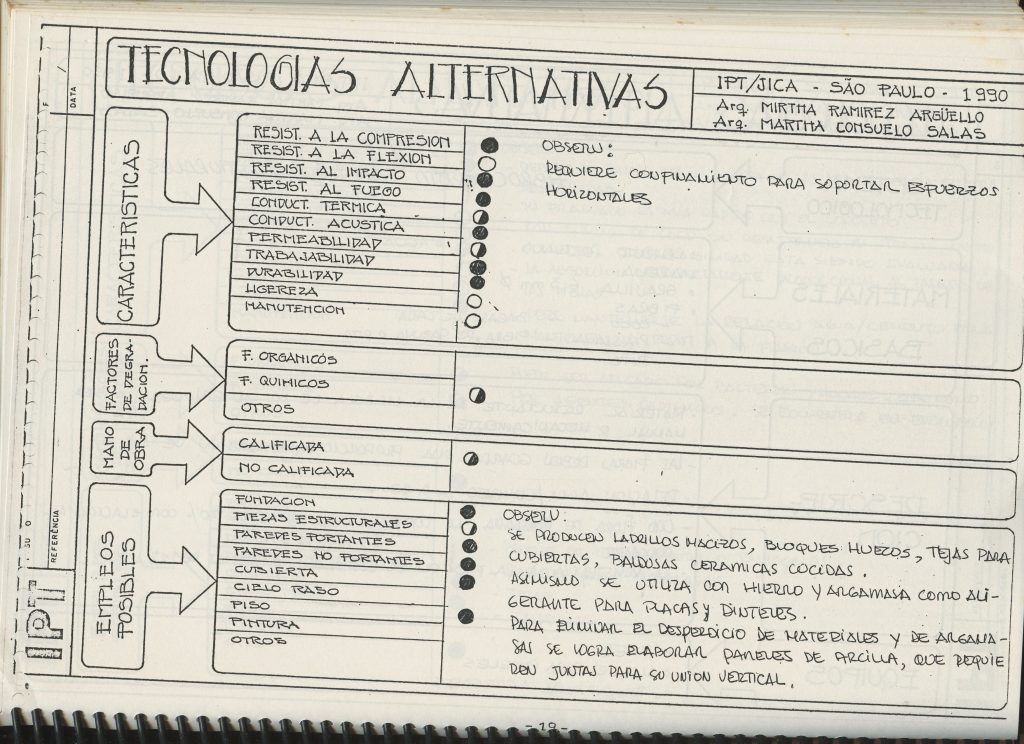 TECNOLOGIAS ALTERNATIVAS
IPT/JICA - SÃO PAULO - 1990
Arq. MIRTHA RAMIREZ ARGÜELLO
Arq. MARTHA CONSUELO SALAS
DATA
CARACTERISTICAS
RESIST. A LA COMPRESION
RESIST. A LA FLEXION
RESIST. AL IMPACTO
RESIST. AL FUEGO
CONDUCT. TERMICA
CONDUCT. ACUSTICA
PERMEABILIDAD
TRABAJABILIDAD
DURABILIDAD
LIGEREZA
MANUTENCION
OBSERV:
REQUIERE CONFINAMIENTO PARA SOPORTAR ESFUERZOS
HORIZONTALES
FACTORES
DE DEGRA-
DACION.
F. ORGANICOS
F. QUIMICOS
OTROS
MANO
DE
OBRA
CALIFICADA
NO CALIFICADA
EMPLEOS
POSIBLES
FUNDACION
PIEZAS ESTRUCTURALES
PAREDES PORTANTES
PAREDES NO PORTANTES
CUBIERTA
CIELO RASO
PISO
PINTURA
OTROS
OBSERV:
SE PRODUCEN LADRILLOS MACIZOS, BLOQUES HUECOS, TEJAS PARA
CUBIERTAS, BALDOSAS CERAMICAS COCIDAS.
ASIMISMO SE UTILIZA CON HIERRO Y ARGAMASA COMO ALI-
GERANTE PARA PLACAS Y DINTELES.
PARA ELIMINAR EL DESPERDICIO DE MATERIALES Y DE ARGAMA-
SAS SE LOGRA ELABORAR PANELES DE ARCILLA, QUE REQUIE
REN JUNTAS PARA SU UNION VERTICAL.
REFERÊNCIA
IPT
- 19 -